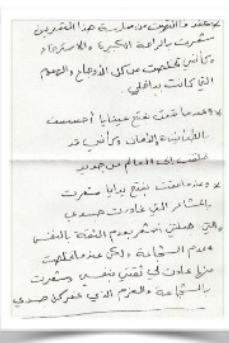 * عندما انتهيت من ممارسة هذا التمرين
شعرت بالراحة الكبيرة والاسترخاء
وكأنني تخلصت من كل الأوجاع والهموم
التي كانت بداخلي
* وعندما قمت بفتح عينايا أحسست
بالطمأنينة والأمان وكأنني قد
خلقت إلى العالم من جديد
* وعندما قمت بفتح يدايا شعرت
بالمشاعر التي غادرت جسدي
التي جعلتني أشعر بعدم الثقة بالنفس
وعدم الشجاعة ولكن عندما تخلصت
منها عادت لي ثقتي بنفسي وشعرت
بالشجاعة والعزم الذي غمر كل جسدي